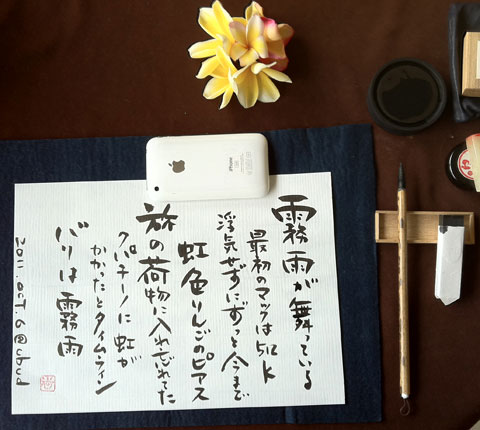 霧雨が舞っている
最初のマックは512K
浮気せずにずっと今まで
虹色りんごのピアス
旅の荷物に入れ忘れてた
クパチーノに虹が
かかったとタイムライン
バリは霧雨
2011.oct.6@ubud
iPhone